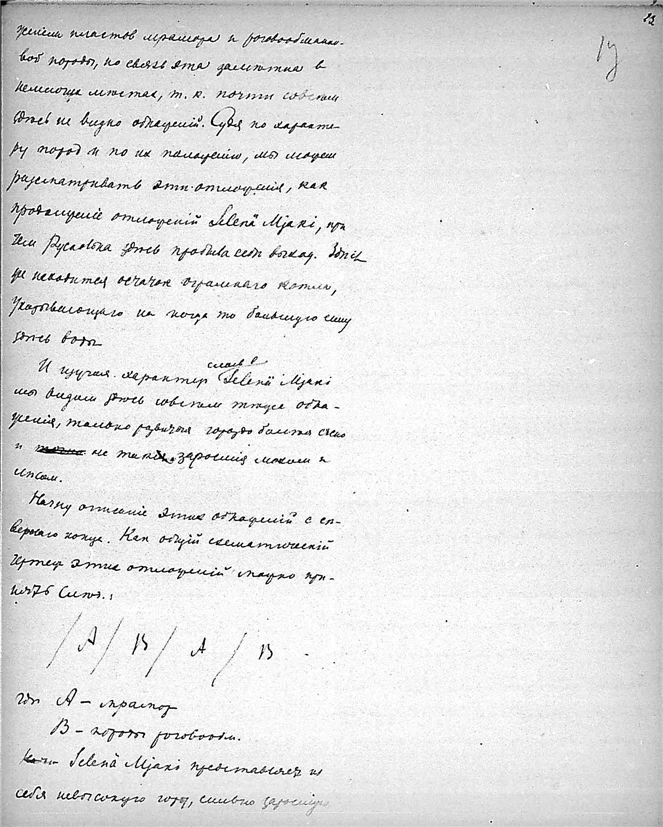 23
19
жении пластов мрамора и роговообманко-
вой породы, но связь эта заметна в
немногих местах, т. к. почти совсем
здесь не видно обнажений. Судя по характе-
ру пород и по их положению, мы можем
разсматривать эти отложения, как
продолжение отложений Selenä Mjaki, при
чем Русколка здесь пробила себе выход. Здесь
же находится остаток огромнаго котла,
указывающаго на когда то большую силу
здесь воды
слоев в
И изучая характер Selenä Mjaki
мы видим здесь совсем такие обна-
жения, только развитыя гораздо более ясно
и не так заросшия мохом и
лесом.
Начну описание этих обнажений с се-
вернаго конца. Как общий схематический
чертеж этих отложений можно при-
нять след.:
/ A / B / A / B
где A – мрамор
B – породы роговообм.
Selenä Mjaki представляет из
себя невысокую гору, сильно заросшую